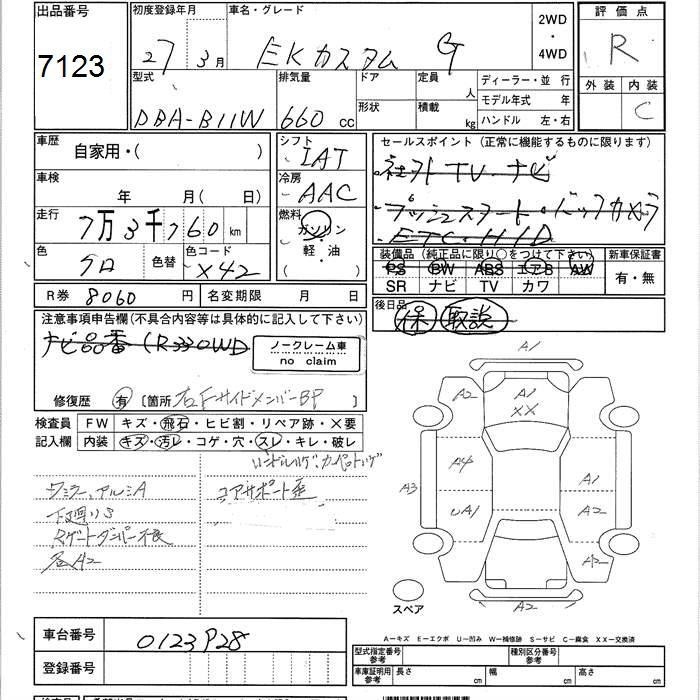 出品番号 初度登録年月 車名・グレード 2WD・4WD 評価点
7123 27年 3月 EKカスタム G R
型式 排気量 ドア 定員 人 ディーラー・並 行 外装 内装
DBA-B11W 660cc 形状 積載 kg モデル年式 年 C
ハンドル 左・右
車歴 自家用・( ) シフト IAT セールスポイント (正常に機能するものに限ります)
車検 年 月( 日) 冷房 AAC 社外TV・ナビ
走行 7万3千760km 燃料 ガソリン・軽・油 プッシュスタート・バックカメラ
ETC・HID
色 クロ 色替 色コード X42 装備品 (純正品に限り○をつけて下さい) 新車保証書
PS PW ABS エアB AW 有・無
SR ナビ TV カワ
R券 8060円 名変期限 月 日 後日品
注意事項申告欄(不具合内容等は具体的に記入して下さい) 保 取説
ナビ品番 (R330WD ノークレーム車
no claim
修復歴 有 [箇所 右FサイドメンバーBP ]
検査員 FW キズ・飛石・ヒビ割・リペア跡・X要
記入欄 内装 キズ・汚レ・コゲ・穴・スレ・キレ・破レ
ワミラー、アルミA コアサポート歪
下廻りS
Rゲートダンパー不良
A2
A1
A2 A1 XX
A4 A1
A3 UA1 A2
A2
A2
スペア
車台番号 0123P28
登録番号
A—キズ E—エクボ U—凹み W—補修跡 S—サビ C—腐食 XX—交換済
型式指定番号 参考 種別区分番号 参考
車庫証明用 参考 長さ cm 幅 cm 高さ cm